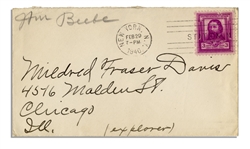 Wm Beebe
NEW YORK, N.Y.
FEB 29
7-PM
1940
Mildred Fraser Davis
4516 Malden St.
Chicago
Ill.
(explorer)